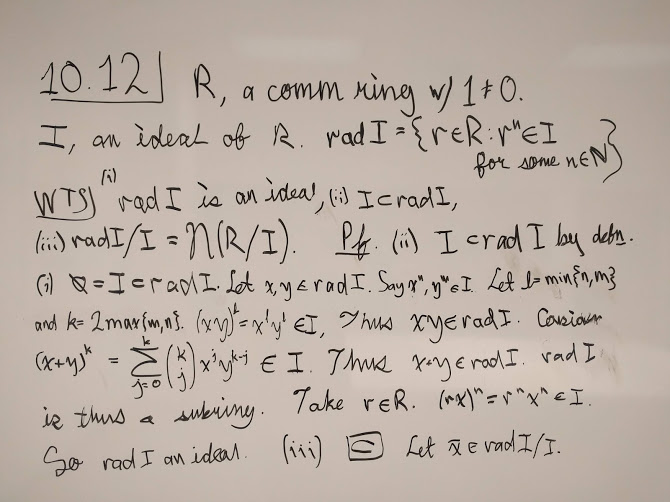 10.12 R, a comm ring w/ 1≠0.
I, an ideal of R. rad I = {r∈R : rⁿ∈I
for some n∈N}
WTS (i) rad I is an ideal, (ii) I⊂rad I,
(iii) rad I/I = N(R/I). Pf. (ii) I⊂rad I by defn.
(i) ∅≠I⊂rad I. Let x,y∈rad I. Say xⁿ,yᵐ∈I. Let l=min{n,m}
and k=2max{m,n}. (xy)ˡ=xˡyˡ∈I, Thus xy∈rad I. Consider
(x+y)ᵏ = ∑_{j=0}^{k} (k j) xʲyᵏ⁻ʲ ∈ I. Thus x+y∈rad I. rad I
is thus a subring. Take r∈R. (rx)ⁿ=rⁿxⁿ∈I.
So rad I an ideal. (iii) ⊂ Let x̄∈rad I/I.